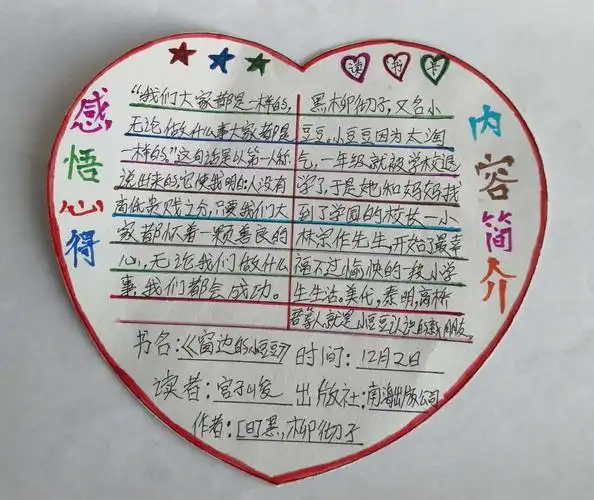 读书卡
感悟心得
"我们大家都是一样的,
无论做什么事大家都是
一样的,"这句话是以第一人称
说出来的,它使我明白:人没有
高低贵贱之分,只要我们大
家都怀着一颗善良的
心,无论我们做什么
事,我们都会成功。
内容简介
黑柳彻子,又名小
豆豆。小豆豆因为太淘
气,一年级就被学校退
学了,于是她和妈妈找
到了学园的校长—小
林宗作先生,开始了最幸
福不过愉快的一段小学
生生活。美代,泰明,高桥
君等人就是小豆豆认识的新朋友。
书名:《窗边的小豆豆》
时间:12月2日
读者:宫子峻
出版社:南海出版公司
作者:[日]黑,柳彻子